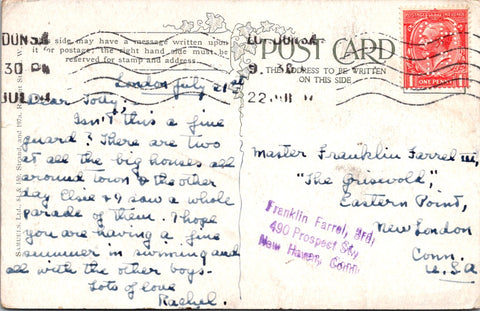 side may have a message written upon
it for postage; the right hand side must be
reserved for stamp and address
London July 21st
Dear Totty:
Isn't this a fine
guard? There are two
at all the big houses all
around town & the other
day Elsie & I saw a whole
parade of them. I hope
you are having a fine
summer in swimming and
all with the other boys.
Lots of love
Rachel.
SAMUELS, Ltd.,
Strand, and
POST CARD
THE ADDRESS TO BE WRITTEN
ON THIS SIDE
LONDON
9. 30
22
30 PM
JUL
POSTAGE REVENUE
ONE PENNY
Master Franklin Farrel III,
"The Griswold",
Eastern Point,
New London
Conn.
U.S.A
Franklin Farrel, 3rd,
490 Prospect St.,
New Haven, Conn.